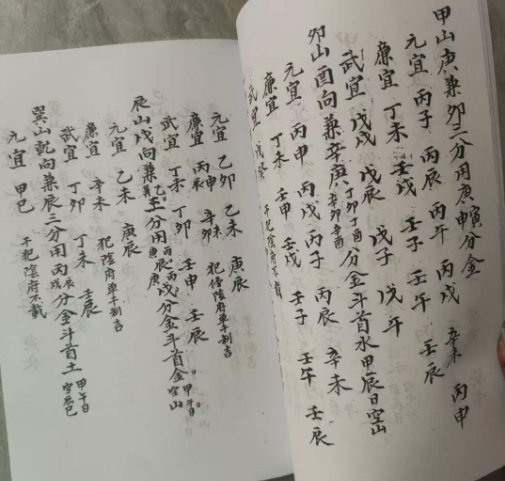 甲山庚兼卯三分用庚申寅分金
元宜 丙子 丙辰 丙午 丙戌 辛未 丙申
廉宜 丁未 壬戌 壬子 壬午 壬辰
武宜 戊戌 戊辰 戊子 戊午
卯山酉向兼辛庚 丁卯丁酉 辛卯辛酉 分金斗首水甲辰日空山
元宜 丙申 丙戌 丙子 丙辰 辛未
廉宜 丁未 壬申 壬戌 壬子 壬午 壬辰
武宜 干犯陰府不載
元宜 乙卯 乙未 庚辰
廉宜 丙申 辛卯 犯傍陰府單干制吉
武宜 丁未 丁卯 壬申 壬辰
辰山戌向兼乙分用丙戌分金斗首金甲午日空山
元宜 乙未 庚辰
廉宜 辛未 犯陰府單干制吉
武宜 丁卯 丁未 壬辰
巽山乾向兼辰三分用丙戌分金斗首土 甲午日空辰巳
元宜 甲巳 干犯陰府不載